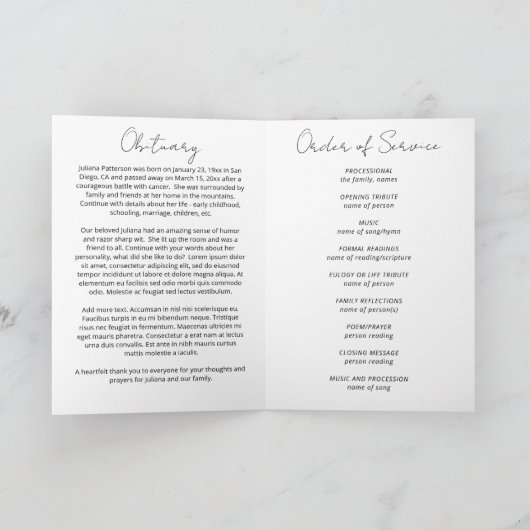 Obituary
Juliana Patterson was born on January 23, 19xx in San
Diego, CA and passed away on March 15, 20xx after a
courageous battle with cancer.  She was surrounded by
family and friends at her home in the mountains.
Continue with details about her life - early childhood,
schooling, marriage, children, etc.
Our beloved Juliana had an amazing sense of humor
and razor sharp wit.  She lit up the room and was a
friend to all.  Continue with your words about her
personality, what did she like to do?  Lorem ipsum dolor
sit amet, consectetur adipiscing elit, sed do eiusmod
tempor incididunt ut labore et dolore magna aliqua. At
elementum eu facilisis sed odio morbi quis commodo
odio. Molestie ac feugiat sed lectus vestibulum.
Add more text. Accumsan in nisl nisi scelerisque eu.
Faucibus turpis in eu mi bibendum neque. Tristique
risus nec feugiat in fermentum. Maecenas ultricies mi
eget mauris pharetra. Consectetur a erat nam at lectus
urna duis convallis. Est ante in nibh mauris cursus
mattis molestie a iaculis.
A heartfelt thank you to everyone for your thoughts and
prayers for Juliana and our family.
Order of Service
PROCESSIONAL
the family, names
OPENING TRIBUTE
name of person
MUSIC
name of song/hymn
FORMAL READINGS
name of reading/scripture
EULOGY OR LIFE TRIBUTE
name of person
FAMILY REFLECTIONS
name of person(s)
POEM/PRAYER
person reading
CLOSING MESSAGE
person reading
MUSIC AND PROCESSION
name of song